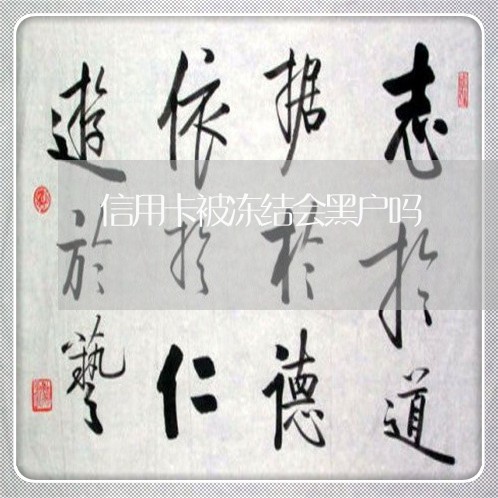 志於道
据於德
依於仁
遊於藝
信用卡被冻结会黑户吗